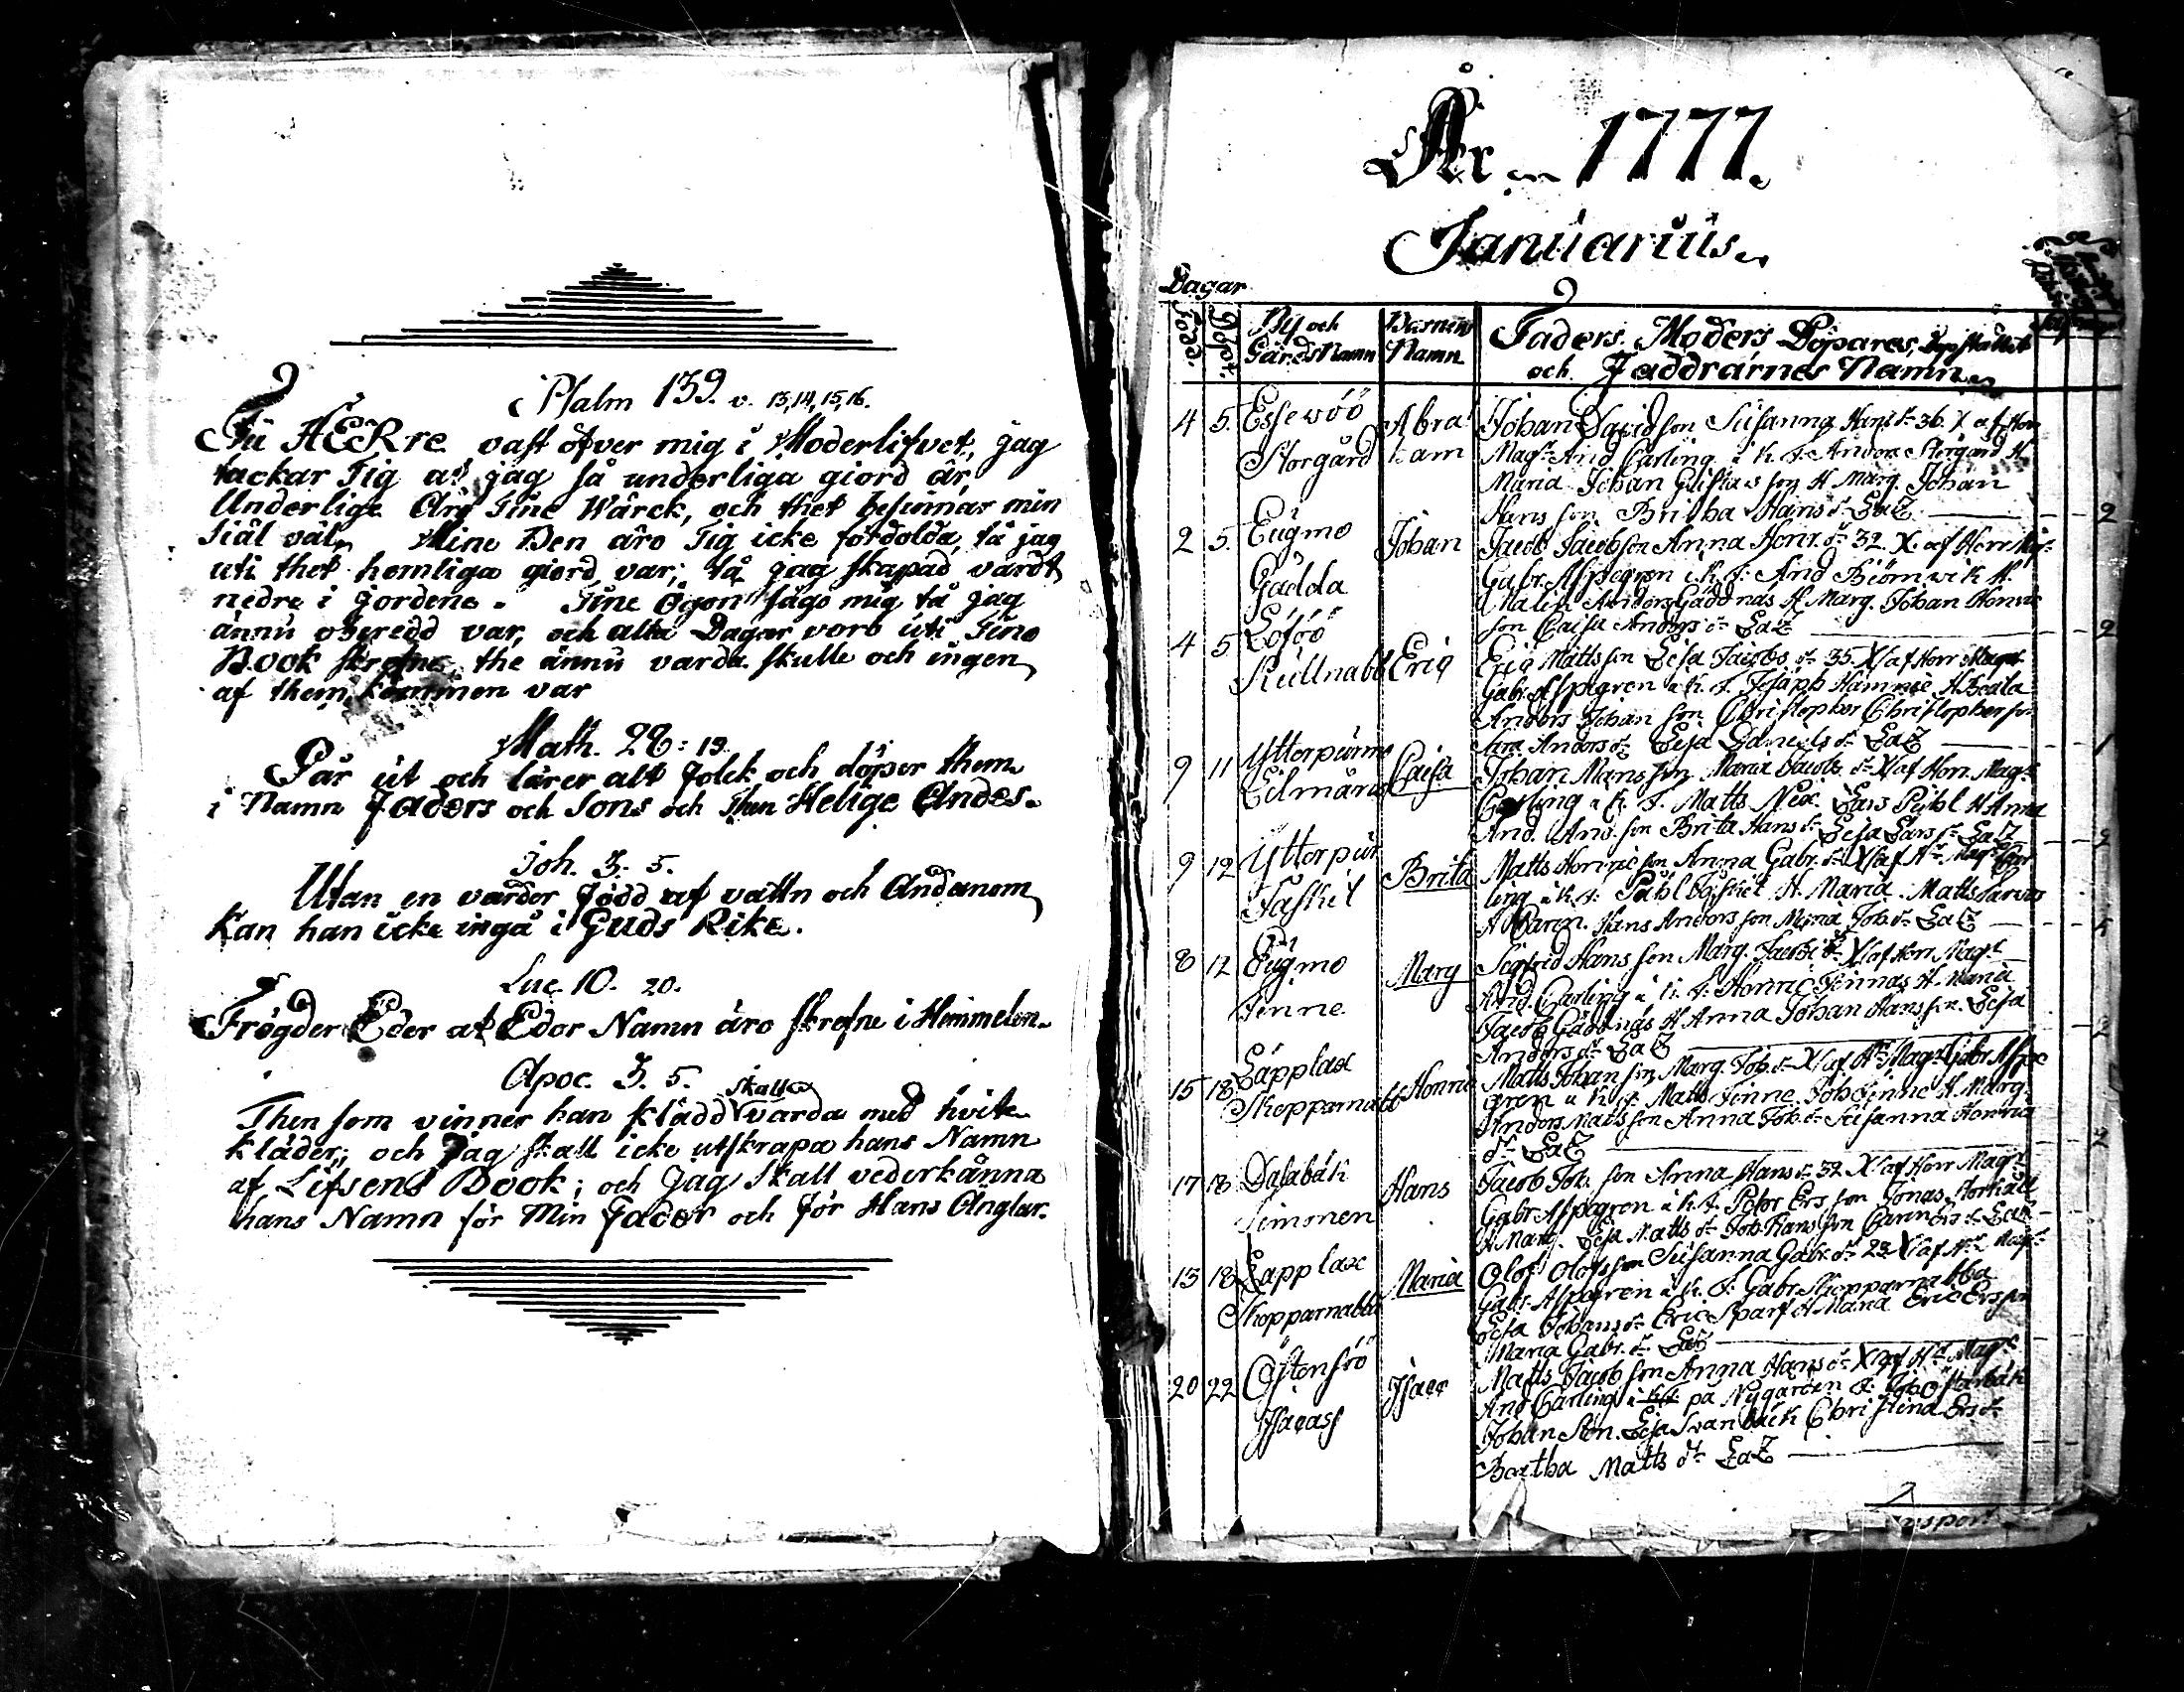 Psalm 139. v. 13,14,15,16.
Tu HERre vast öfver mig i Moderlifvet, jag
tackar Tig at jag så underliga giord är,
Underlige äro Tine Wärck, och thet besinnar min
Siäl väl. Mine Ben äro Tig icke fördolda, tå jag
uti thet hemliga giord var; tå jag skapad vardt
nedre i jordene. Tine ögon sågo mig tå jag
ännu oberedd var, och alla Dagar voro uti Tine
Book skrefne, the ännu varda skulle och ingen
af them kommen var
Math. 28: 19.
Går ut och lärer alt Folck och döper them
i Namn Faders och Sons och Then Helige Andes.
Joh. 3. 5.
Utan en varder född af vattn och Andanom
kan han icke ingå i Guds Rike.
Luc. 10. 20.
Frögder Eder at Eder Namn äro skrefne i Himmelen.
Apoc. 3. 5.
skall
Then som vinner han klädd varda med hvita
kläder; och Jag skall icke utskrapa hans Namn
af Lifsens Book; och Jag skall vederkänna
hans Namn för Min Fader och för Hans Änglar.
År 1777.
Januarius.
Dagar
Född. Döpt. By och Gårds Namn Barnens Namn Faders, Moders Döpares, Dopstället
och Faddrarnes Namn
4 5. Essewöö Abra Johan Davidson Susanna Hans dr 36. X af Herr
Storgård ham Magr And. Carling i K. F. Anders Storgård H.
Maria Johan Gustavs son H Marg. Johan
Hans son Britha Hans dr LaZ 2
2 5. Eugmo Johan Jacob Jacobson Anna Henr. dr 32. X. af Herr Magr
Gädda Gabr. Aspegren i K. F. And Biörnwik H.
Malin Anders Gäddnäs H Marg. Johan Henric
son Caisa Anders dr LaZ 2
4 5 Löföö Eric Eric Mattsson Lisa Jacobs dr 35. X af Herr Magr
Kullnabb Gabr. Aspegren i K. F. Joseph H Beata
Anders Johan son Christopher Christopherson
Anders dr Lisa Daniels dr LaZ 1
9 11 Ytterpurmo Caisa Johan Mansson Maria Jacobs dr X af Herr Magr
Carling i K. F. Matts Lars Pehl H Anna
And. And. son Brita Hans dr Lisa Lars dr LaZ 2
9 12 Ytterpur Brita Matts Henric son Anna Gabr. dr X af Hr Magr Car
Faskil ling i K. F. Påhl H. Maria Matts
H Karin. Hans Anders son Maria Joh. dr LaZ
8 12 Eugmo Marg Sigfrid Hans son Marg. Jacobs dr X af Herr Magr
Finne And. Carling i K. F. Henric Finnäs H. Maria
Jacob Gäddnäs H Anna Johan Hansson. Lisa
Anders dr LaZ 2
15 18 Lapplax Henric Matts Johan son Marg. Joh. dr X af Hr Magr Gabr. Aspe
Skepparnabb gren i K F. Matts Finne. Joh Finne H Marg.
Anders Matts son Anna Joh. dr Susanna Henric
dr LaZ 2
17 18 Dalabäck Hans Jacob Joh. son Anna Hans dr 32 X af Herr Magr
Simonen Gabr Aspegren i K. F. Petter Ers son Jonas
H Marg. Lisa Matts dr Joh. Hans son Carin Ers dr LaZ
15 18 Lapplax Maria Olof Olofsson Susanna Gabr. dr 23 X af Hr Magr
Skepparnabba Gabr. Aspegren i K. F. Gabr. Skepparnabba
Lisa Johans dr Eric Sparf H Maria Eric Ersson
Maria Gabr. dr LaZ
20 22 Östensöö Isaac Matts Jacob son Anna Hans dr X af Hr Magr
Isacass And Carling i på Nygården F: Joh Österbäck
Johan Sten. Lisa Svanbäck Christina Ers dr
Bertha Matts dr LaZ